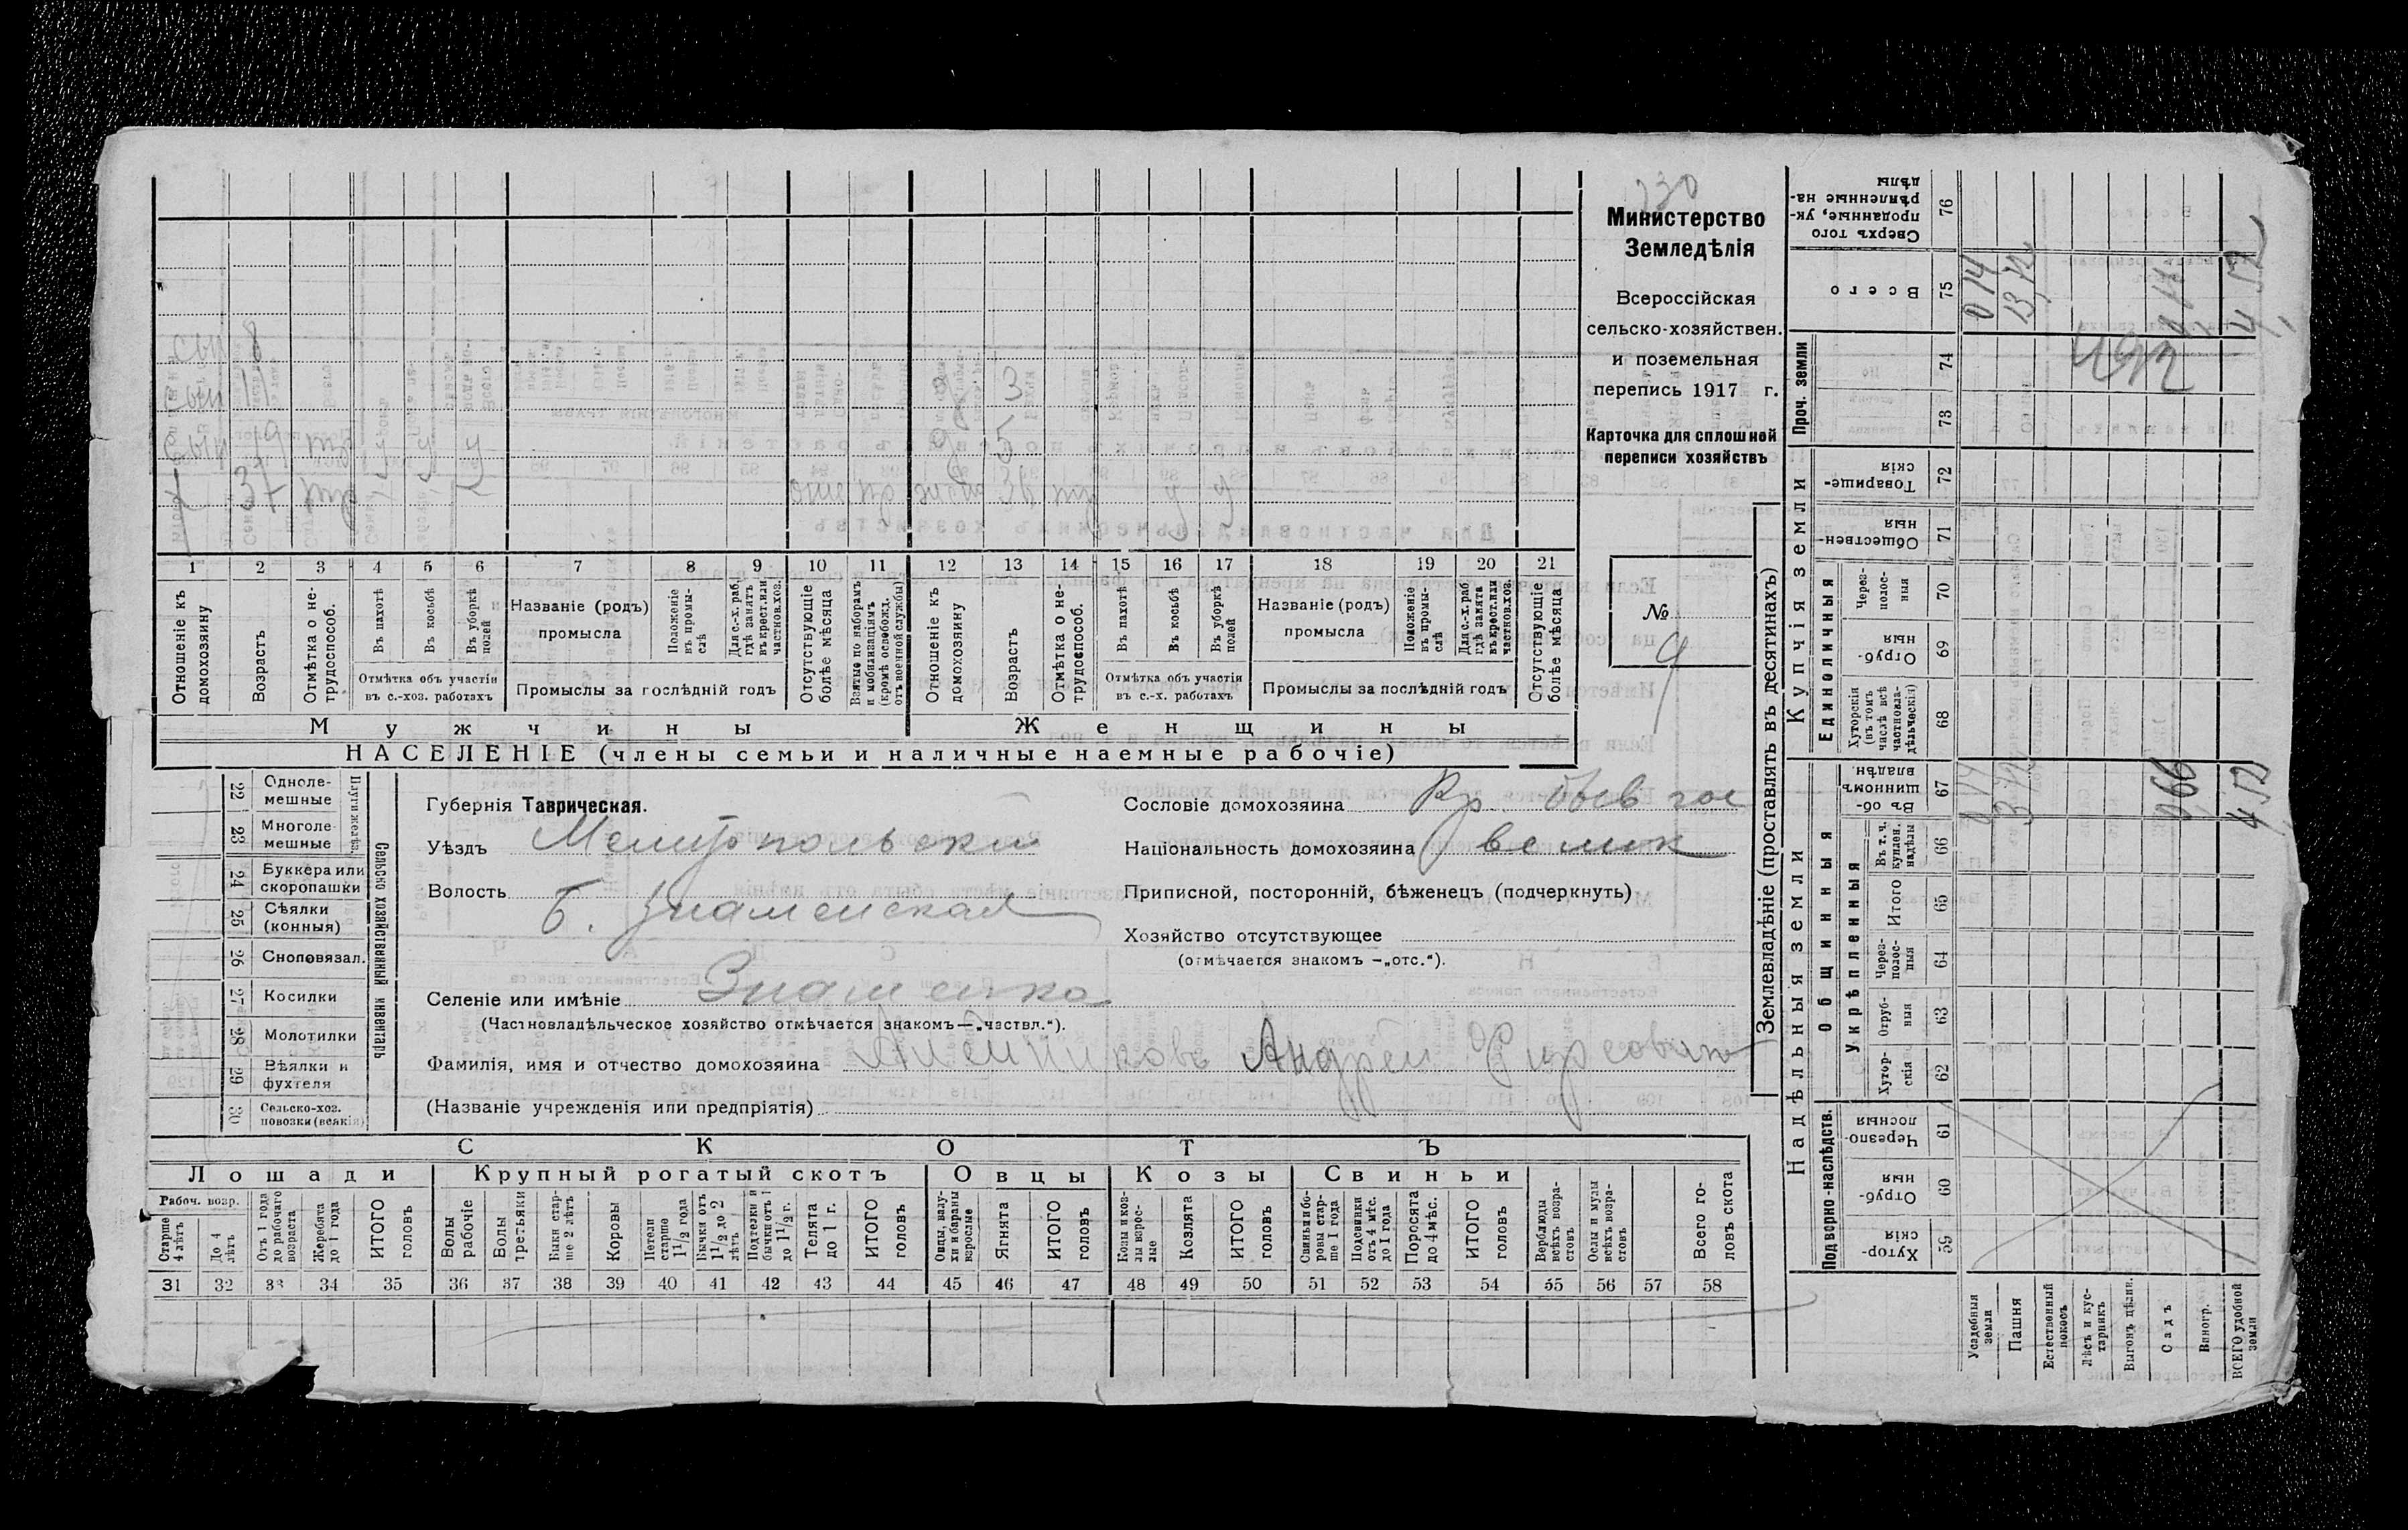 230
Министерство
Земледѣлія
Всероссійская
сельско-хозяйствен.
и поземельная
перепись 1917 г.
Карточка для сплошной
переписи хозяйствъ
№
9
сын 8
сын 11 3
сын 19 тр у у у 5
х 37 тр у у отс жена 36 тр у у
1 2 3 4 5 6 7 8 9 10 11 12 13 14 15 16 17 18 19 20 21
Отношеніе къ домохозяину
Возрастъ
Отмѣтка о не-трудоспособ.
Въ пахотѣ
Въ косьбѣ
Въ уборкѣ полей
Отмѣтка объ участіи
въ с.-хоз. работахъ
Названіе (родъ)
промысла
Положеніе въ промы-слѣ
Для с.-х. раб. гдѣ занятъ въ крест. или частнов. хоз.
Промыслы за послѣдній годъ
Отсутствующіе болѣе мѣсяца
Взятые по наборамъ и мобилизаціямъ (кромѣ освобожд. отъ военной службы)
Отношеніе къ домохозяину
Возрастъ
Отмѣтка о не-трудоспособ.
Въ пахотѣ
Въ косьбѣ
Въ уборкѣ полей
Отмѣтка объ участіи
въ с.-х. работахъ
Названіе (родъ)
промысла
Положеніе въ промы-слѣ
Для с.-х. раб. гдѣ занята въ крест. или частнов. хоз.
Промыслы за послѣдній годъ
Отсутствующіе болѣе мѣсяца
Мужчины Женщины
НАСЕЛЕНІЕ (члены семьи и наличные наемные рабочіе)
Сельско хозяйственный инвентарь
Плуги желѣз.
22 Одноле-мешные
23 Многоле-мешные
24 Буккера или скоропашки
25 Сѣялки (конныя)
26 Сноповязал.
27 Косилки
28 Молотилки
29 Вѣялки и фухтеля
30 Сельско-хоз. повозки (всякія)
Губернія Таврическая.
Уѣздъ Мелитопольский
Волость Б. Знаменская
Селеніе или имѣніе Знаменка
(Частновладѣльческое хозяйство отмѣчается знакомъ—„частвл.“).
Фамилія, имя и отчество домохозяина Алейников Андрей Фирсович
(Названіе учрежденія или предпріятія)
Сословіе домохозяина Кр. быв гос
Національность домохозяина велик
Приписной, посторонній, бѣженецъ (подчеркнуть)
Хозяйство отсутствующее
(отмѣчается знакомъ —„отс.“).
СКОТЪ
Лошади Крупный рогатый скотъ Овцы Козы Свиньи
Рабоч. возр.
Старше 4 лѣтъ
До 4 лѣтъ
Отъ 1 года до рабочаго возраста
Жеребята до 1 года
ИТОГО головъ
Волы рабочіе
Волы третьяки
Быки стар-ше 2 лѣтъ
Коровы
Нетели старше 1 1/2 года
Бычки отъ 1 1/2 до 2 лѣтъ
Подтелки и бычки отъ 1 до 1 1/2 г.
Телята до 1 г.
ИТОГО головъ
Овцы, валу-хи и бараны взрослые
Ягнята
ИТОГО головъ
Козы и коз-лы взрос-лые
Козлята
ИТОГО головъ
Свиньи и бо-ровы стар-ше 1 года
Подсвинки отъ 4 мѣс. до 1 года
Поросята до 4 мѣс.
ИТОГО головъ
Верблюды всѣхъ возра-стовъ
Ослы и мулы всѣхъ возра-стовъ
Всего го-ловъ скота
31 32 33 34 35 36 37 38 39 40 41 42 43 44 45 46 47 48 49 50 51 52 53 54 55 56 57 58
Землевладѣніе (проставлять въ десятинахъ)
Надѣльныя земли
Купчія земли
Проч. земли
Подворно-наслѣдств.
Общинныя
Укрѣпленныя
Единоличныя
Хутор-скія 59
Отруб-ныя 60
Черезпо-лосныя 61
Хутор-скія 62
Отруб-ныя 63
Через-полос-ныя 64
Итого 65
Въ т. ч. куплен. надѣлы 66
Въ об-щинномъ владѣн. 67
Хуторскія (въ томъ числѣ всѣ частновла-дѣльческія) 68
Отруб-ныя 69
Через-полос-ныя 70
Обществен-ныя 71
Товарище-скія 72
73
74
Всего 75
Сверхъ того проданные, ук-рѣпленные на-дѣлы 76
Усадебныя земли
Пашня
Естественный покосъ
Лѣсъ и кус-тарникъ
Выгонъ цѣлин.
Садъ
Виногр.
ВСЕГО удобной земли
0 14
4,52
4,52